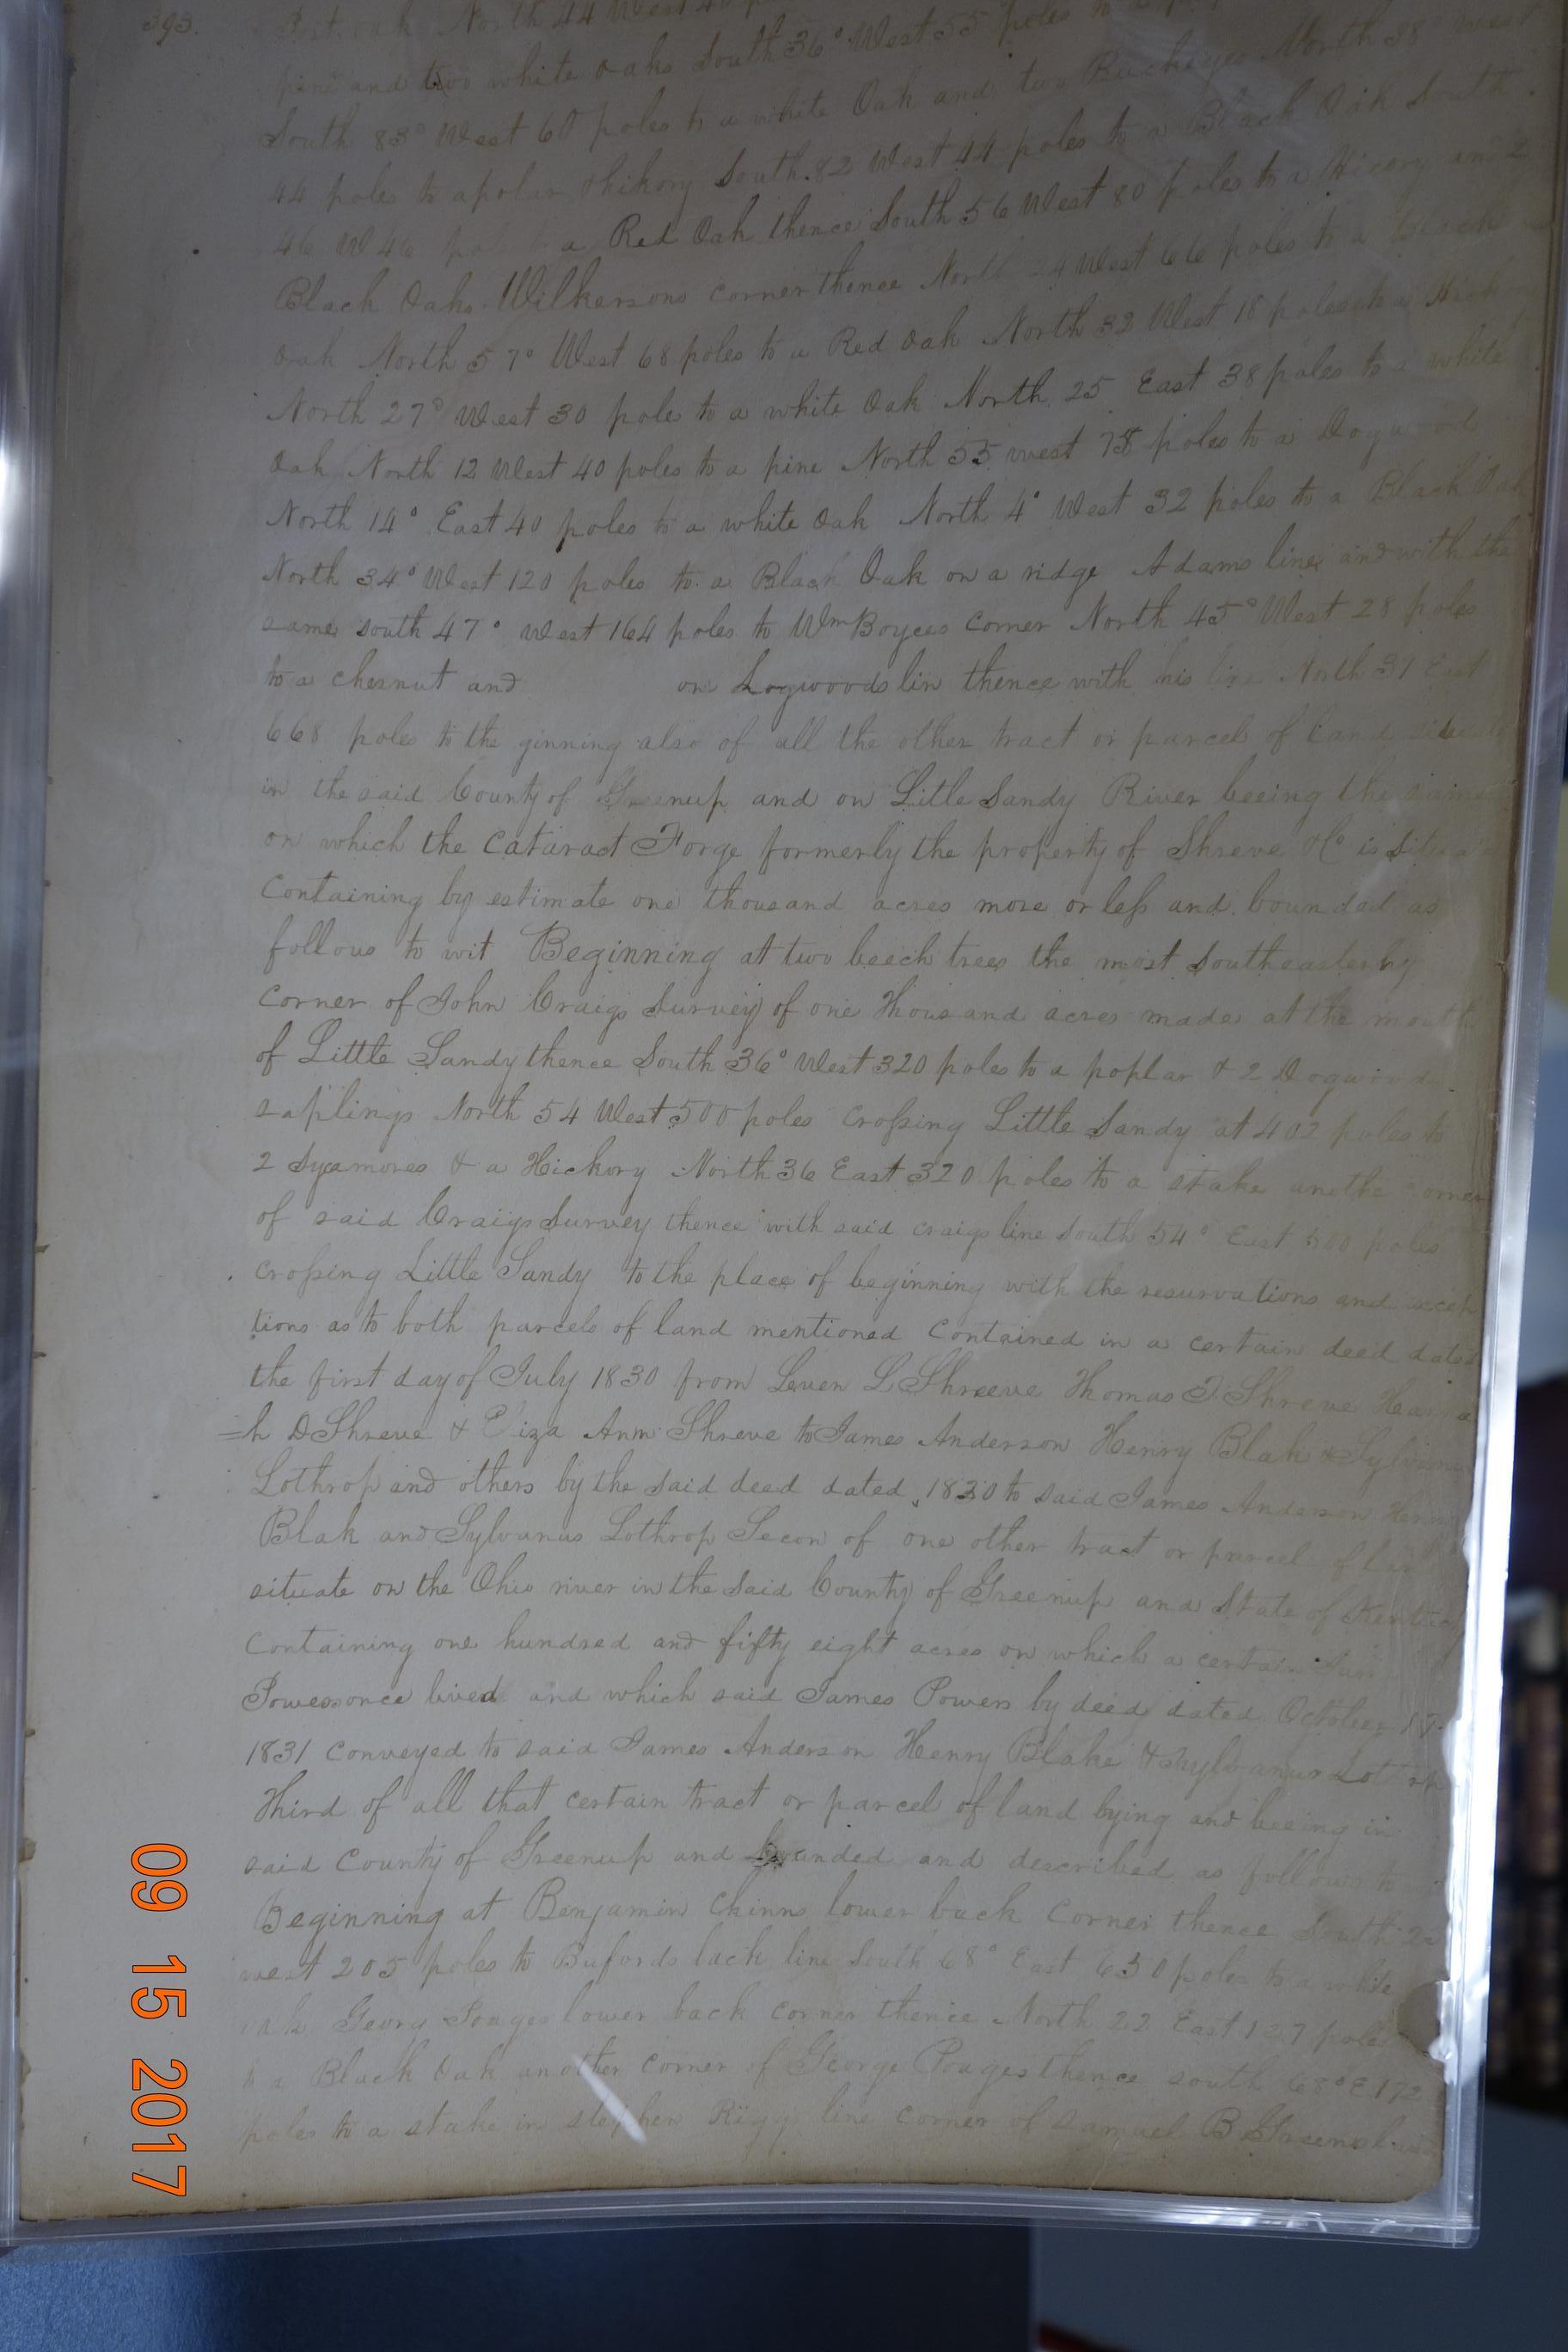 393.
Post oak North 44 West 40
pine and two white oaks South 36° West 55 poles to a
South 83° West 60 poles to a white Oak and two Buckeyes North 38° West
44 poles to a poplar & hikory South 82 West 44 poles to a Black Oak South
46 W 46 a Red Oak thence South 56 West 80 poles to a Hicory and 2
Black Oaks Wilkersons corner thence North 24 West 66 poles to a Black
Oak North 57° West 68 poles to a Red Oak North 32 West 18 poles to a
North 27° West 30 poles to a white Oak North 25 East 38 poles to a white
Oak North 12 West 40 poles to a pine North 55 west 78 poles to a Dogwood
North 14° East 40 poles to a white Oak North 4° West 32 poles to a Black Oak
North 34° West 120 poles to a Black Oak on a ridge Adams line and with the
same south 47° west 164 poles to Wm Boyces corner North 45° West 28 poles
to a chesnut and on Logwoods lin thence with his line North 31 East
668 poles to the ginning also of all the other tract or parcel of land situate
in the said County of Greenup and on Litle Sandy River beeing the same
on which the Cataract Forge formerly the property of Shreve & Co is
Containing by estimate one thousand acres more or less and bounded as
follows to wit Beginning at two beech trees the most Southeasterly
Corner of John Craigs Survey of one thousand acres made at the mouth
of Little Sandy thence South 36° West 320 poles to a poplar & 2 Dogwood
saplings North 54 West 500 poles crossing Little Sandy at 402 poles to
2 Sycamores & a Hickory North 36 East 320 poles to a stake anothe corner
of said Craigs Survey thence with said craigs line South 54° East 500 poles
crossing Little Sandy to the place of beginning with the resurvations and excep
tions as to both parcels of land mentioned Contained in a certain deed dated
the first day of July 1830 from Leven L Shreeve Thomas T. Shreve
=h D Shreve & Eliza Ann Shreve to James Anderson Henry Blak &
Lothrop and others by the said deed dated 1830 to said James Anderson Henry
Blak and Sylvanus Lothrop Secon of one other tract or parcel of land
situate on the Ohio river in the said County of Greenup and State of
Containing one hundred and fifty eight acres on which a certain
Powers once lived and which said James Powers by deed dated October 17
1831 conveyed to said James Anderson Henry Blake &
Third of all that certain tract or parcel of land lying and beeing in
said County of Greenup and bounded and described as follows to
Beginning at Benjamin Chinns lower back Corner thence South
west 205 poles to Bufords back line South 68° East 630 poles to a white
oak Georg Poages lower back corner thence North 22 East 127 poles
to a Black Oak another corner of George Poages thence south 68° E 172
poles to a stake in stephen Riggs line corner of Samuel B
09 15 2017